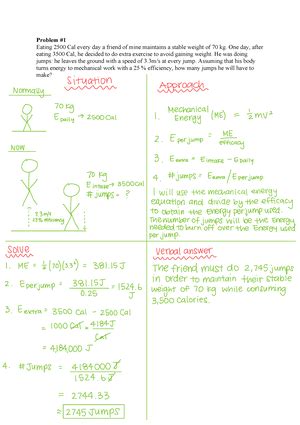 Problem #1
Eating 2500 Cal every day a friend of mine maintains a stable weight of 70 kg. One day, after
eating 3500 Cal, he decided to do extra exercise to avoid gaining weight. He was doing
jumps: he leaves the ground with a speed of 3.3m/s at every jump. Assuming that his body
turns energy to mechanical work with a 25% efficiency, how many jumps he will have to
make?
Situation
Normally
70 kg
E daily → 2500 Cal
Now
70 kg
E intake → 3500 Cal
# jumps = ?
3.3 m/s
25% efficiency
Approach
1. Mechanical Energy (ME) = ½mv²
2. E per jump = ME / efficacy
3. E extra = E intake - E daily
4. # jumps = E extra / E per jump
I will use the mechanical energy
equation and divide by the efficacy
to obtain the energy per jump used.
The number of jumps will be the energy
needed to burn off over the energy used
per jump.
Solve
1. ME = ½(70)(3.3²) = 381.15 J
2. E per jump = 381.15 J / 0.25 = 1524.6 J
3. E extra = 3500 Cal - 2500 Cal
= 1000 Cal · 4184 J / Cal
= 4184,000 J
4. # Jumps = 4184000 J / 1524.6 J
= 2744.33
= 2745 Jumps
Verbal answer
The friend must do 2,745 jumps
in order to maintain their stable
weight of 70 kg while consuming
3,500 calories.